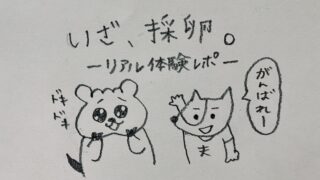 いざ、採卵。
ーリアル体験レポー
ドキ
ドキ
夫
がんばれー